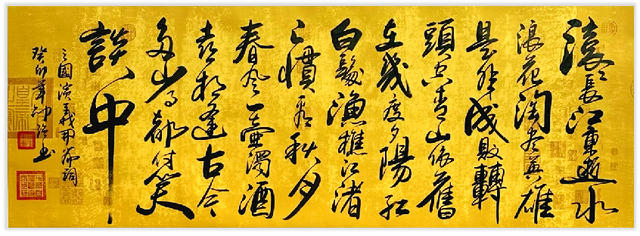 滚滚長江東逝水
浪花淘尽英雄
是非成敗轉
頭空青山依舊
在幾度夕陽紅
白髮漁樵江渚
上慣看秋月
春风一壺濁酒
喜相逢古今
多少事都付笑
談中
三國演義開篇词
癸卯年 书